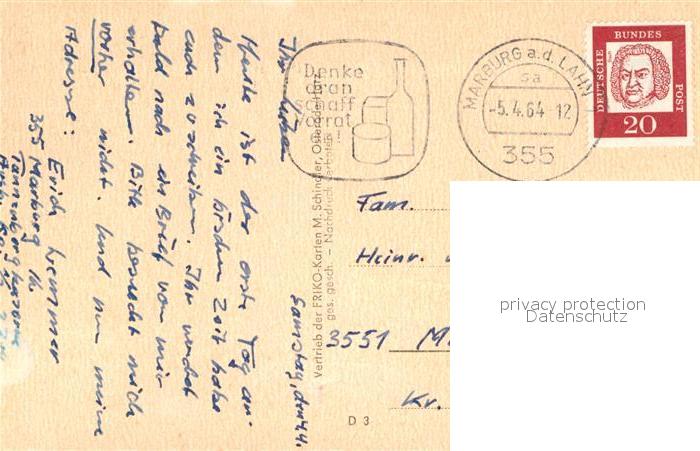 Samstag, den 4.4.
Ihr Lieben
Heute ist der erste Tag an
dem ich ein bischen Zeit habe
euch zu schreiben. Ihr werdet
bald noch ein Brief von mir
erhalten. Bitte besucht mich
vorher nicht. Und nun meine
Adresse:
Erich
355 Marburg
Denke
dran
schaff
Vorrat
an!
MARBURG a.d. LAHN
sa
-5.4.64-12
355
DEUTSCHE BUNDESPOST
20
Vertrieb der FRIKO-Karten M. Schindler, Osterode/Harz
ges. gesch. – Nachdruck verboten
Fam.
Heinr.
3551 M
Kr.
D 3
privacy protection
Datenschutz